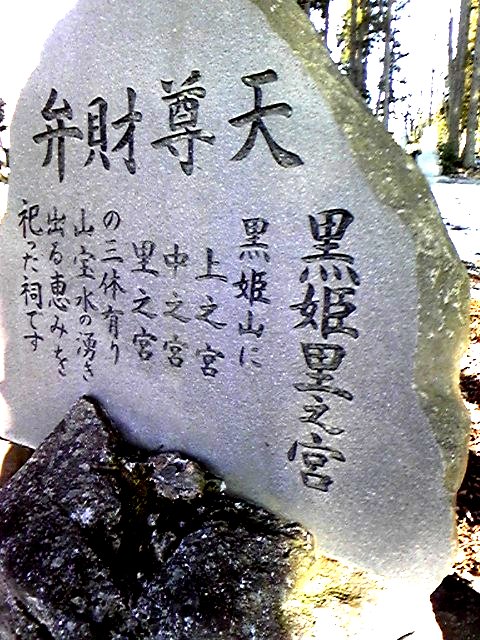 弁財尊天
黒姫里之宮
黒姫山に
上之宮
中之宮
里之宮
の三体有り
山宝水の湧き
出る恵みを
祀った祠です